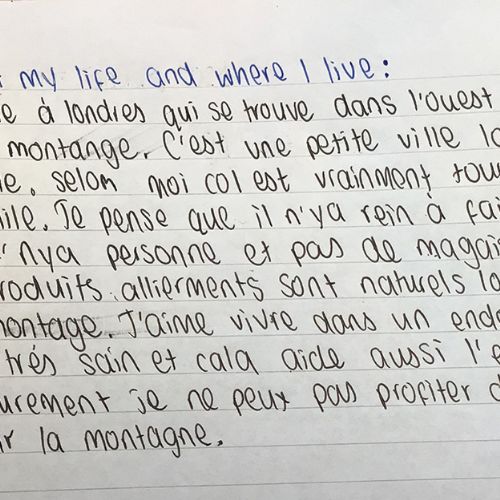 my life and where I live:
à londres qui se trouve dans l'ouest
montange. C'est une petite ville
selon moi col est vraiment
Je pense que il n'ya rein à
n'ya personne et pas de
produits allierments sont naturels
montage. J'aime vivre dans un
trés sain et cala aide aussi
je ne peux pas profiter
la montagne.